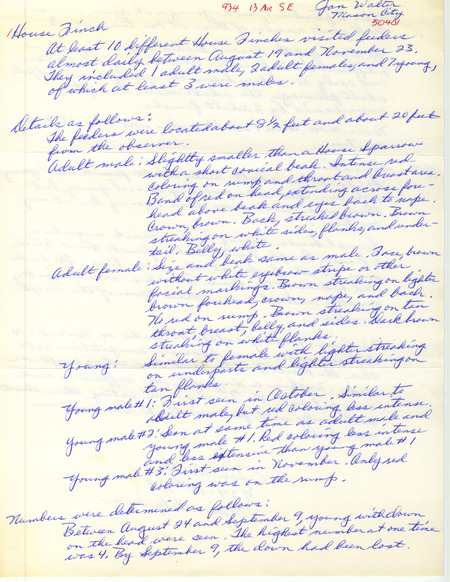 934 13 Ave S.E. Jan Walter
Mason City
50401
1 House Finch
At least 10 different House Finches visited feeders
almost daily between August 19 and November 23.
They included 1 adult male, 2 adult females, and 7 young,
of which at least 3 were males.
Details as follows:
The feeders were located about 8 1/2 feet and about 20 feet
from the observer.
Adult male: Slightly smaller than a House Sparrow
with a short conical beak. Intense red
coloring on rump and throat and breast area.
Band of red on head, extending across fore-
head above beak and eyes back to nape.
Crown, brown. Back, streaked brown. Brown
streaking on white sides, flanks, and under-
tail. Belly, white.
Adult female: Size and beak same as male. Face, brown
without white eyebrow stripe or other
facial markings. Brown streaking on lighter
brown forehead, crown, nape, and back.
No red on rump. Brown streaking on tan
throat, breast, belly, and sides. Dark brown
streaking on white flanks.
Young: Similar to female with lighter streaking
on underparts and lighter streaking on
tan flanks.
Young male #1: First seen in October. Similar to
adult male, but red coloring less intense.
Young male #2: Seen at same time as adult male and
young male #1. Red coloring less intense
and less extensive than young male #1
Young male #3: First seen in November. Only red
coloring was on the rump.
Numbers were determined as follows:
Between August 24 and September 9, young with down
on the head were seen. The highest number at one time
was 4. By September 9, the down had been lost.